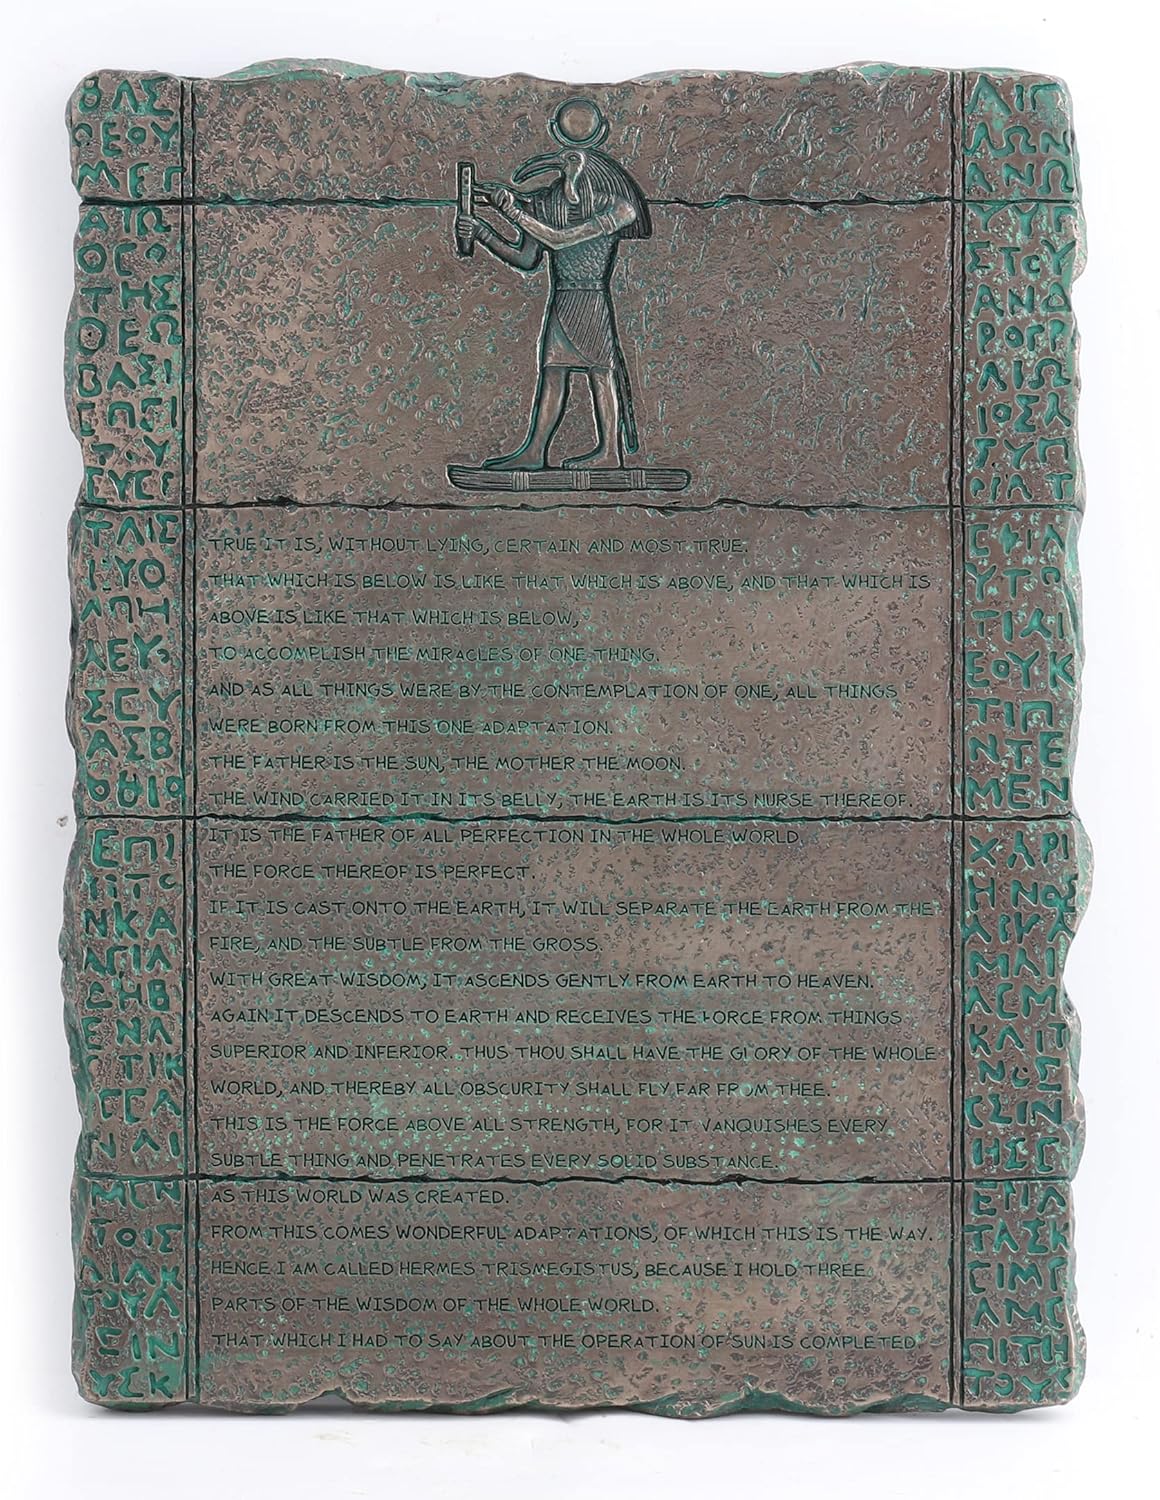 ΒΑΣ
ΘΕΟΥ
ΜΕΓ
ΑΙΩ
ΤΗΣ
ΘΕΩ
ΒΑΣΙ
ΕΠΕΙ
ΤΑΙΣ
ΙΥΟ
ΑΠΗ
ΛΕΥ
ΣΕΥ
ΑΣΒ
ΕΠΙ
ΝΚΑ
ΝΓΙΑ
ΣΗΒ
ΕΝΑ
ΤΙΚ
ΤΟΙΣ
ΕΙΝ
ΥΣΚ
TRUE IT IS, WITHOUT LYING, CERTAIN AND MOST TRUE.
THAT WHICH IS BELOW IS LIKE THAT WHICH IS ABOVE, AND THAT WHICH IS
ABOVE IS LIKE THAT WHICH IS BELOW,
TO ACCOMPLISH THE MIRACLES OF ONE THING.
AND AS ALL THINGS WERE BY THE CONTEMPLATION OF ONE, ALL THINGS
WERE BORN FROM THIS ONE ADAPTATION.
THE FATHER IS THE SUN, THE MOTHER THE MOON.
THE WIND CARRIED IT IN ITS BELLY, THE EARTH IS ITS NURSE THEREOF.
IT IS THE FATHER OF ALL PERFECTION IN THE WHOLE WORLD.
THE FORCE THEREOF IS PERFECT.
IF IT IS CAST ONTO THE EARTH, IT WILL SEPARATE THE EARTH FROM THE
FIRE, AND THE SUBTLE FROM THE GROSS.
WITH GREAT WISDOM, IT ASCENDS GENTLY FROM EARTH TO HEAVEN.
AGAIN IT DESCENDS TO EARTH AND RECEIVES THE FORCE FROM THINGS
SUPERIOR AND INFERIOR. THUS THOU SHALL HAVE THE GLORY OF THE WHOLE
WORLD, AND THEREBY ALL OBSCURITY SHALL FLY FAR FROM THEE.
THIS IS THE FORCE ABOVE ALL STRENGTH, FOR IT VANQUISHES EVERY
SUBTLE THING AND PENETRATES EVERY SOLID SUBSTANCE.
AS THIS WORLD WAS CREATED.
FROM THIS COMES WONDERFUL ADAPTATIONS, OF WHICH THIS IS THE WAY.
HENCE I AM CALLED HERMES TRISMEGISTUS, BECAUSE I HOLD THREE
PARTS OF THE WISDOM OF THE WHOLE WORLD.
THAT WHICH I HAD TO SAY ABOUT THE OPERATION OF SUN IS COMPLETED
ΑΙΓ
ΛΩΝ
ΑΝΩ
ΣΤΟΥ
ΑΝΔ
ΡΟΓΡ
ΛΙΩ
ΙΟΣΥ
ΓΥΠ
ΕΟΥΚ
ΤΙΠ
ΝΤΕ
ΜΕΝ
ΧΑΡΙ
ΗΝΟΣ
ΚΑΙΤ
ΝΟΣ
ΕΠΙΑ
ΤΑΣΚ
ΠΙΤΗ
ΤΟΥΣ